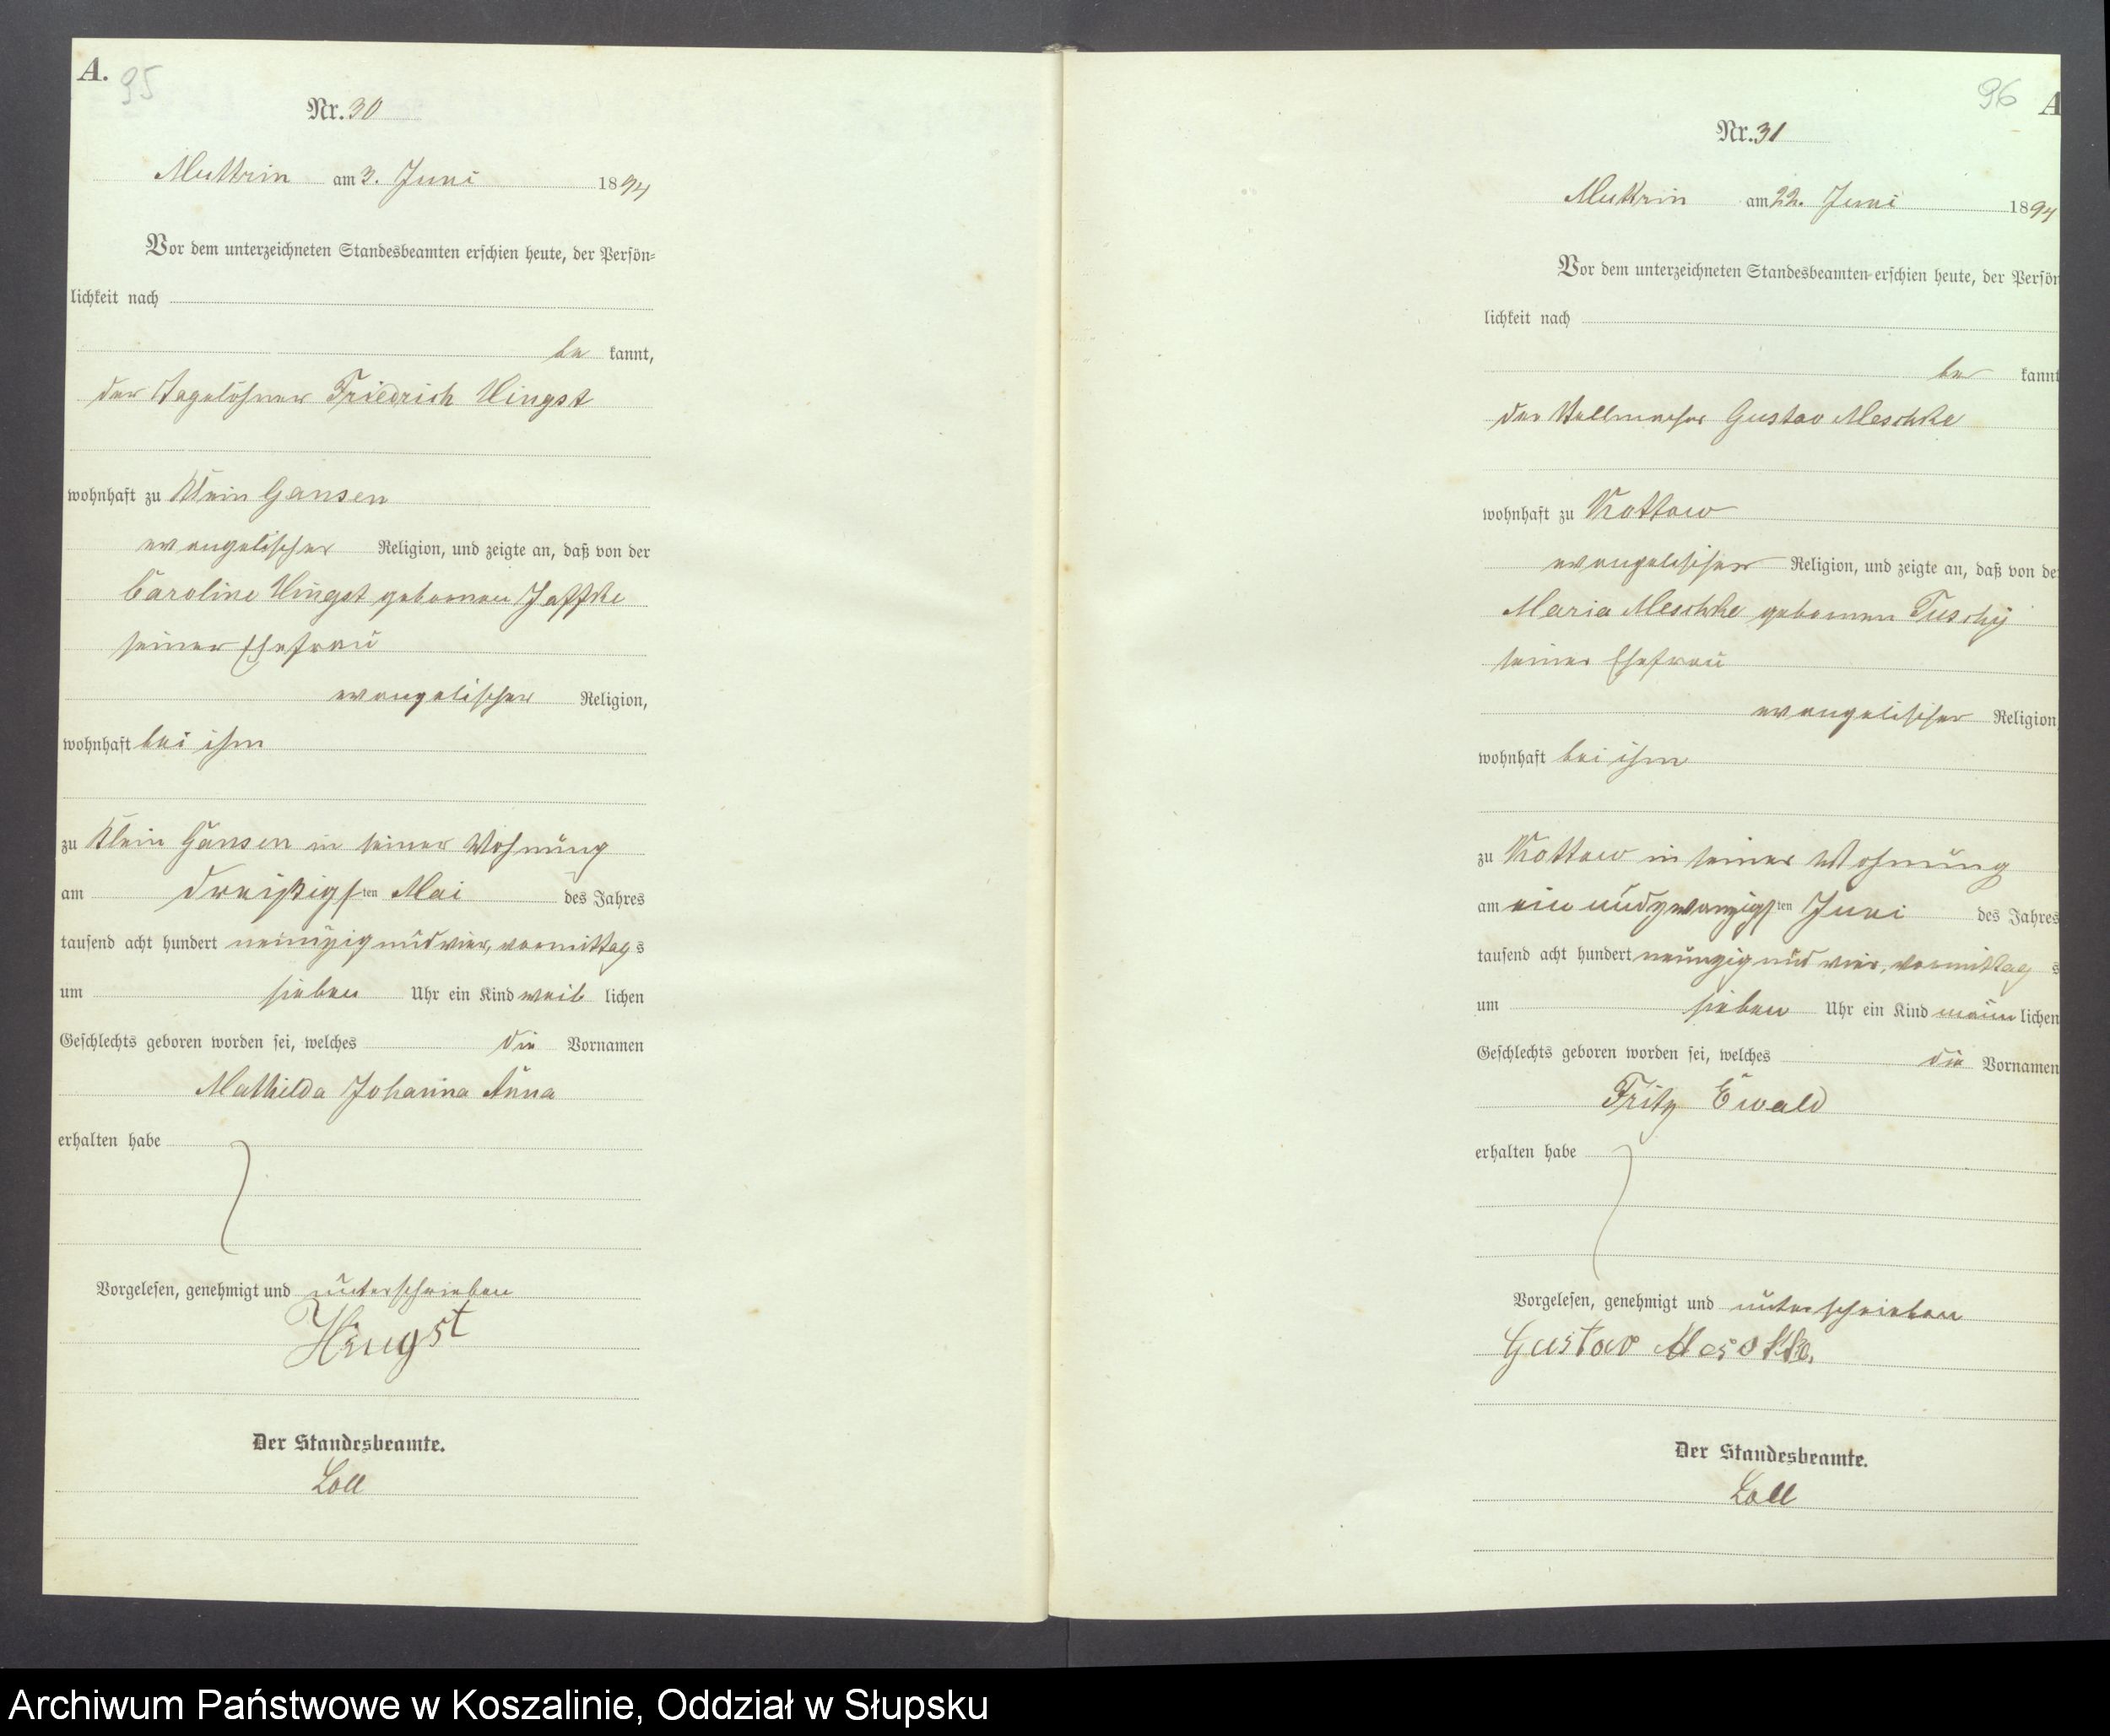 A. 95
Nr. 30
Muttrin am 3. Juni 1894
Vor dem unterzeichneten Standesbeamten erschien heute, der Persön-
lichkeit nach
be kannt,
der Tagelöhner Friedrich Hingst
wohnhaft zu Klein Gansen
evangelischer Religion, und zeigte an, daß von der
Caroline Hingst geborenen Jaffke
seiner Ehefrau
evangelischer Religion,
wohnhaft bei ihm
zu Klein Gansen in seiner Wohnung
am dreißigsten Mai des Jahres
tausend acht hundert neunzig und vier, vormittags
um sieben Uhr ein Kind weiblichen
Geschlechts geboren worden sei, welches die Vornamen
Mathilda Johanna Anna
erhalten habe
Vorgelesen, genehmigt und unterschrieben
Hingst
Der Standesbeamte.
Loll
96 A
Nr. 31
Muttrin am 22. Juni 1894
Vor dem unterzeichneten Standesbeamten erschien heute, der Persön
lichkeit nach
be kannt
der Stellmacher Gustav Meschke
wohnhaft zu Kottow
evangelischer Religion, und zeigte an, daß von de
Maria Meschke geborenen Tuschy
seiner Ehefrau
evangelischer Religion
wohnhaft bei ihm
zu Kottow in seiner Wohnung
am ein und zwanzigsten Juni des Jahres
tausend acht hundert neunzig und vier, vormittag s
um sieben Uhr ein Kind männlichen
Geschlechts geboren worden sei, welches die Vornamen
Fritz Ewald
erhalten habe
Vorgelesen, genehmigt und unterschrieben
Gustav Meschke.
Der Standesbeamte.
Loll
Archiwum Państwowe w Koszalinie, Oddział w Słupsku